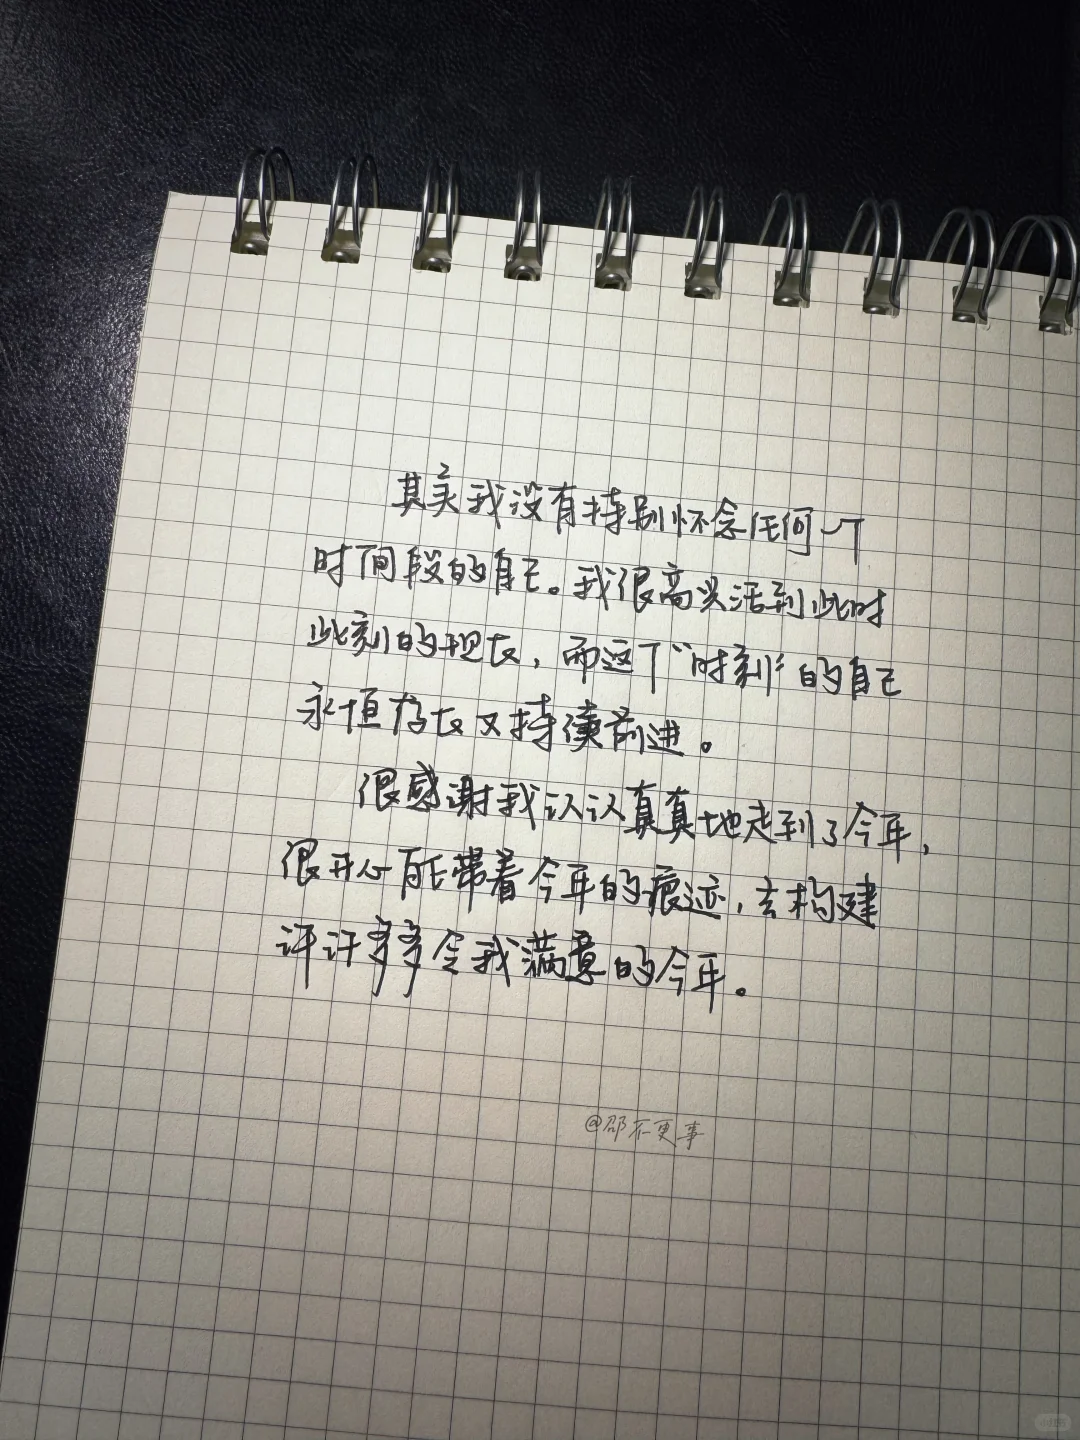 其实我没有特别怀念任何一个
时间段的自己。我很高兴活到此时
此刻的现在，而这个“时刻”的自己
永恒存在又持续前进。
很感谢我认认真真地走到了今年，
很开心能带着今年的痕迹，去构建
许许多多令我满意的今年。
@邵不更事